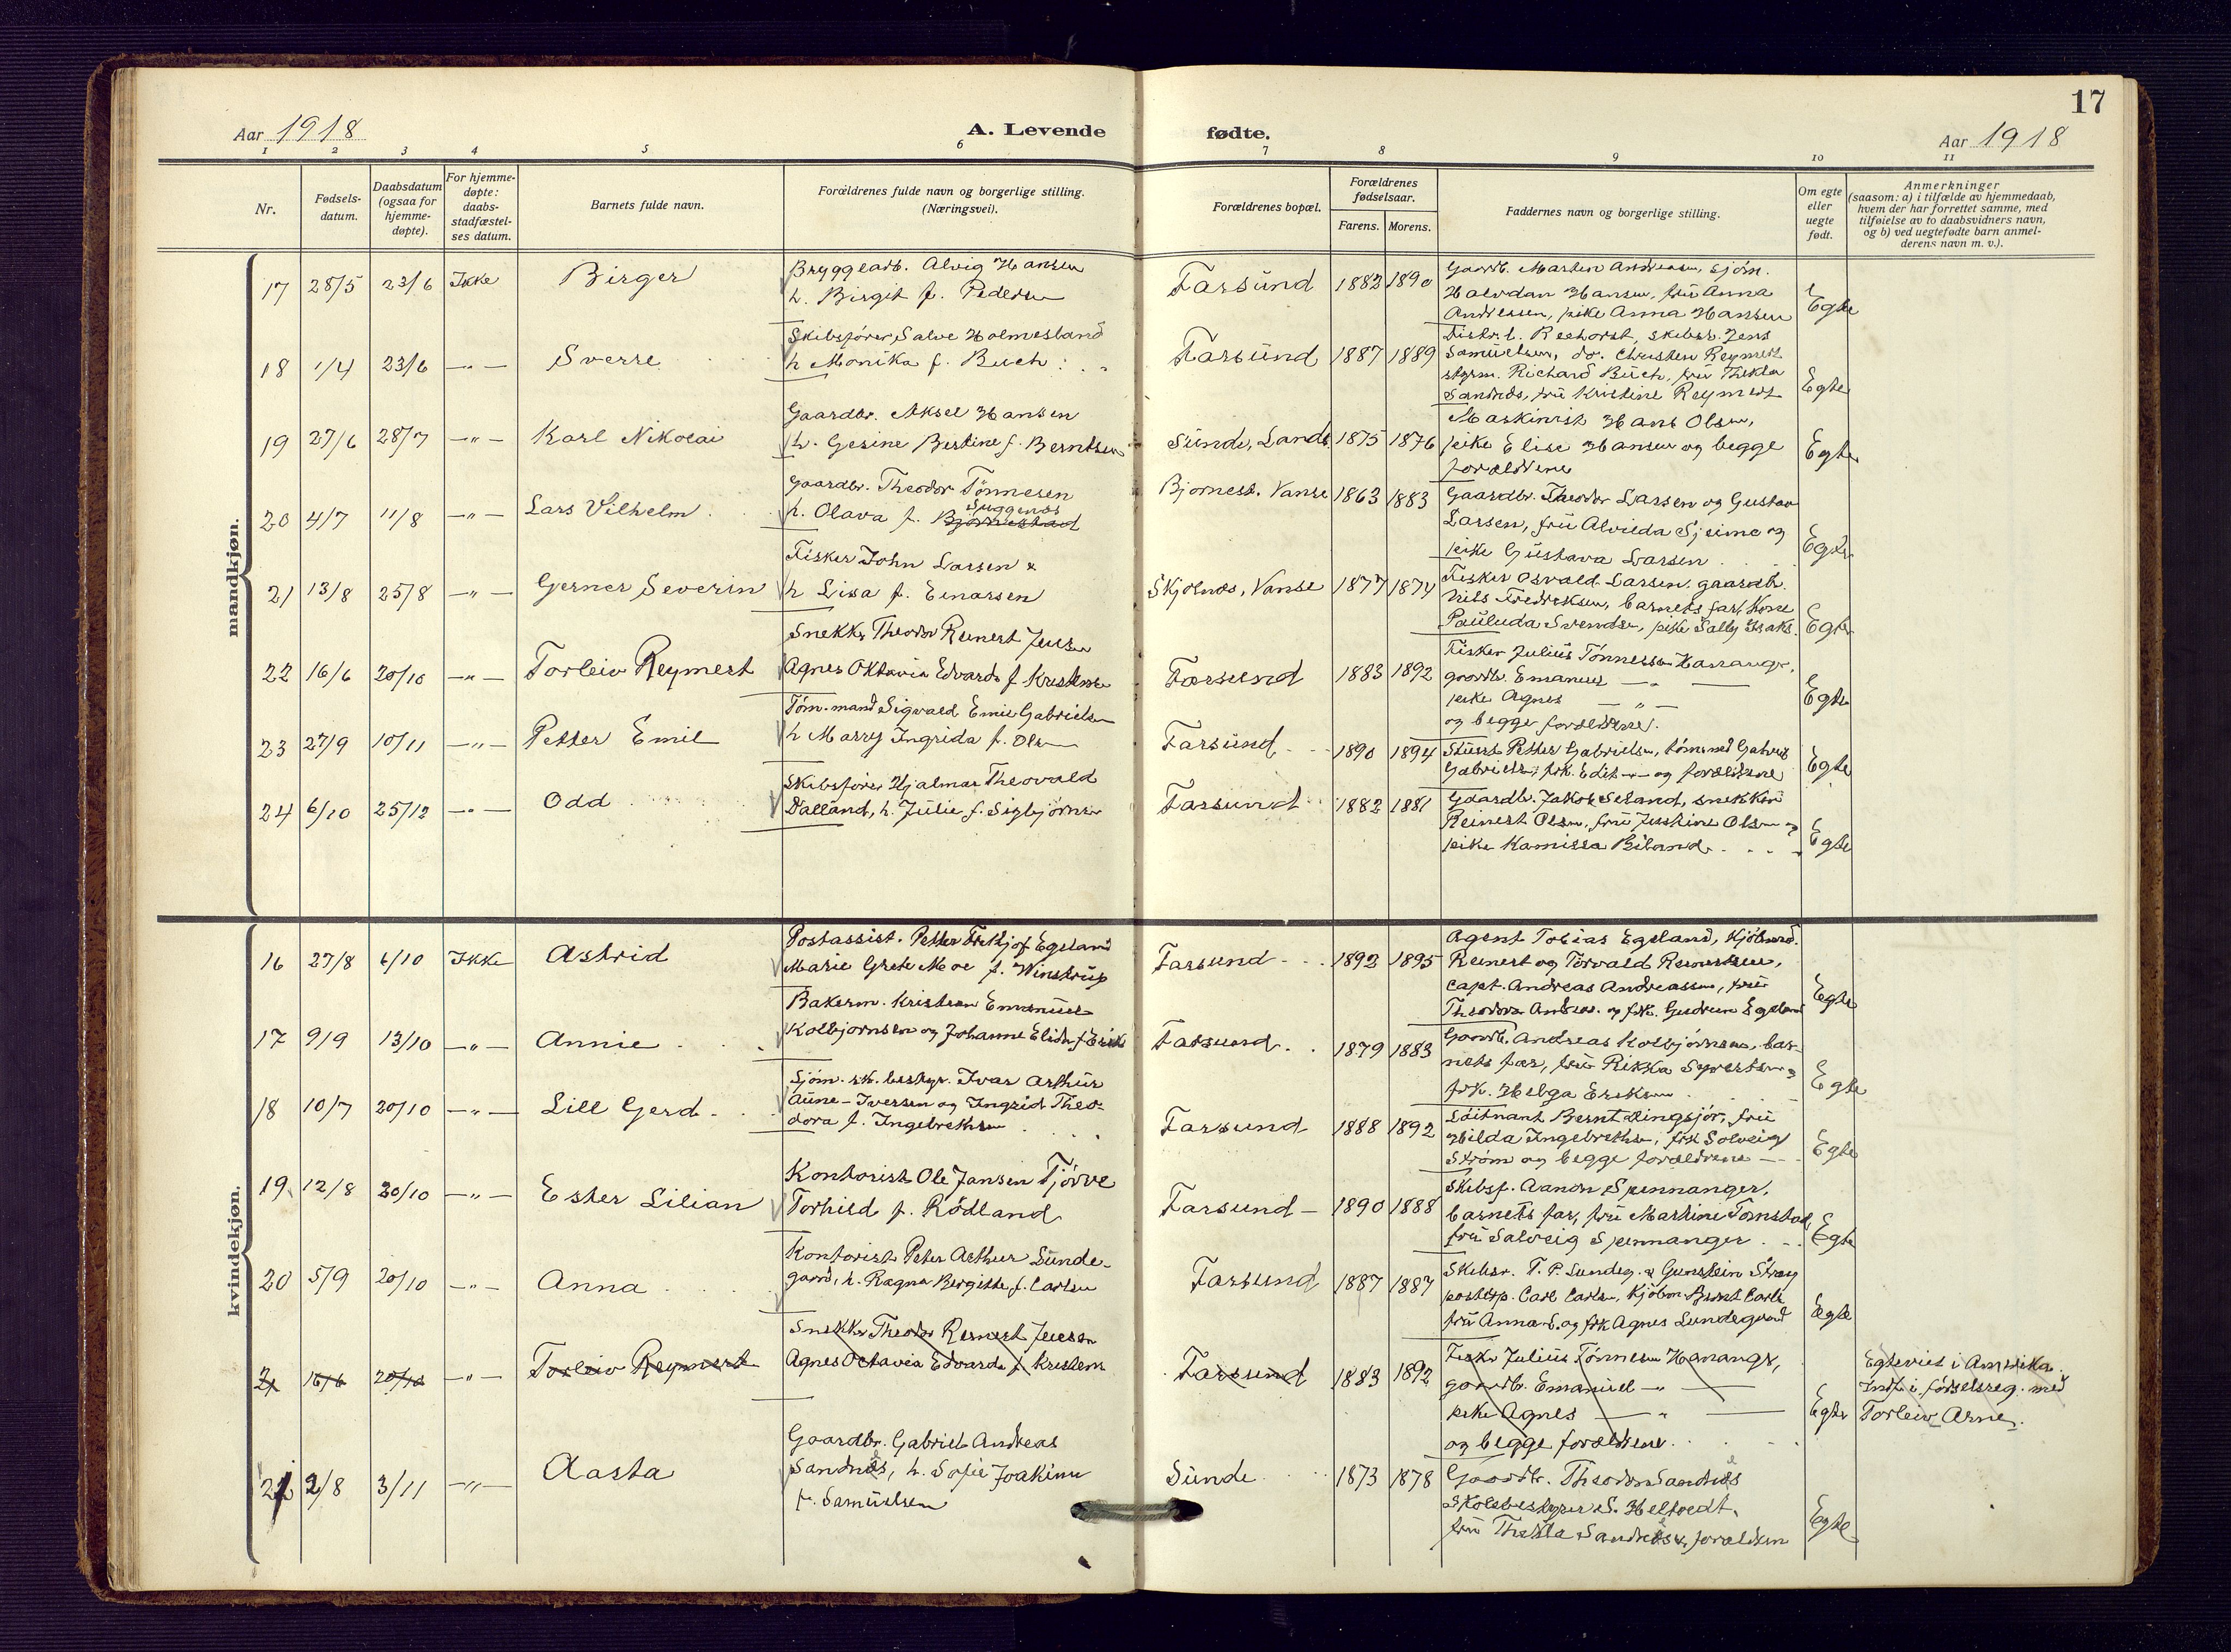 17
Aar 1918
A. Levende
fødte.
Aar 1918
1 2 3 4 5 6 7 8 9 10 11
Nr.
Fødsels-
datum.
Daabsdatum
(ogsaa for
hjemme-
døpte).
For hjemme-
døpte:
daabs-
stadfæstel-
ses datum.
Barnets fulde navn.
Forældrenes fulde navn og borgerlige stilling.
(Næringsvei).
Forældrenes bopæl.
Forældrenes
fødselsaar.
Farens. Morens.
Faddernes navn og borgerlige stilling.
Om egte
eller
uegte
født.
Anmerkninger
(saasom: a) i tilfælde av hjemmedaab,
hvem der har forrettet samme, med
tilføielse av to daabsvidners navn,
og b) ved uegtefødte barn anmel-
derens navn m. v.).
mandkjøn.
17 28/5 23/6 Ikke Birger
Bryggearb. Alvig Hansen
h. Birgit f. Pedersen
Farsund 1882 1890
Gaardb. Marten Andreasen, sjøm.
Halvdan Hansen, frü Anna
Andreassen, pike Anna Hansen
Egte
18 1/4 23/6 —"— Sverre
Skibsfører Salve Holmesland
h Monika f. Buch
Farsund 1887 1889
Reehorst, skibsr. Jens
Samuelsen, do. Christen Reymert
styrm. Richard Büch, frü Thekla
Sandnes, frü Kristine Reymert
Egte
19 27/6 28/7 —"— Karl Nikolai
Gaardbr. Aksel Hansen
h. Gesine Bertine f. Berntsen
Sunde, Lande 1875 1876
Maskinist Hans Olsen,
pike Elise Hansen og begge
forældrene
Egte
20 4/7 11/8 —"— Lars Vilhelm
Gaardbr. Theodor Tønnesen
h. Olava f. Bjørnestad
Bjørnest. Vanse 1863 1883
Gaardbr. Theodor Larsen og Gustav
Larsen, frü Alvilda Sjeime og
pike Güstava Larsen
Egte
21 13/8 25/8 —"— Gerner Severin
Fisker John Larsen &
h Lisa f. Einarsen
Skjolnes, Vanse 1877 1874
Fisker Osvald Larsen, gaardb.
Nils Fredriksen, barnets far, kone
Pauluda Svendsen, pike Sally Isaks.
Egte
22 16/6 20/10 —"— Torleiv Reymert
Snekker Theodor Reinert Jensen
Agnes Oktavia Edvarda f. Kristensen
Farsund 1883 1892
Fisker Julius Tønnessen Hanangr,
gaardb. Emanuel —"—
pike Agnes —"—
og begge forældrene.
Egte
23 27/9 10/11 —"— Petter Emil
Tøm.mand Sigvald Emil Gabrielsen
h Marry Ingrida f. Olsen
Farsund 1890 1894
Stuert Petter Gabrielsen, tømmd Gabriel
Gabrielsen, frk. Edit —"— og forældrene
Egte
24 6/10 25/12 —"— Odd
Skibsfører Hjalmar Theovald
Dalland, h. Julie f. Sigbjørnsen
Farsund 1882 1881
Gaardb. Jakob Seland, snekker
Reinert Olsen, frü Justine Olsen og
pike Kamissa Biland
Egte
kvindekjøn.
16 27/8 6/10 Ikke Astrid
Postassist. Petter Fritjof Egeland
Marie Grete Moe f. Winstrup
Farsund 1892 1895
Agent Tobias Egeland, kjøbmd.
Reinert og Torvald Reinertsen,
Capt. Andreas Andreassen, frü
Theodora Andreas. og frk. Gudrun Egeland
Egte
17 9/9 13/10 —"— Annie
Bakerm. Kristian Emanuel
Kolbjørnsen og Johanne Elida f. Eriks
Farsund 1879 1883
Gaardb. Andreas Kolbjørnsen, bar-
nets far, frü Rikka Syvertsen og
frk. Helga Eriksen
Egte
18 10/7 20/10 —"— Lill Gerd
Sjøm. sk. bestyr. Ivar Arthur
Aune-Iversen og Ingrid Theo-
dora f. Ingebretsen
Farsund 1888 1892
Løitnant Bernt Lingsjør, frü
Hilda Ingebretsen, frk Solveig
Strøm og begge forældrene
Egte
19 12/8 20/10 —"— Ester Lilian
Kontorist Ole Jansen Tjørve
Torhild f. Rødland
Farsund 1890 1888
Skibsf. Aanon Spennanger,
barnets far, frü Martine Tomstad,
frü Salveig Spennanger
Egte
20 5/9 20/10 —"— Anna
Kontorist Peter Arthur Sunde-
gaard, h. Ragna Bergitte f. Carlsen
Farsund 1887 1887
Skibsr. T. P. Sundeg. & Gunstein Stray
postexp. Carl Carlsen, kjøbm Bernt Carls
frü Anna S. og frk Agnes Sundegaard
Egte
21 16/6 20/10 —"— Torleiv Reymert
Snekker Theodor Reinert Jensen
Agnes Octavia Edvarda f. Kristens
Farsund 1883 1892
Fisker Julius Tønnesen Hanangr,
gaardb. Emanuel —"—
pike Agnes —"—
og begge forældrene.
Egte
Egteviet i Amerika.
Indf. i fødselsreg. med
Torleiv Arne.
21 2/8 3/11 —"— Aasta
Gaardbr. Gabriel Andreas
Sandnes, h. Sofie Joakime
f. Samuelsen
Sunde 1873 1878
Gaardb. Theodor Sandnes
Skolebestyrer S. Heltvedt,
frü Thekla Sandnes &, forældren
Egte